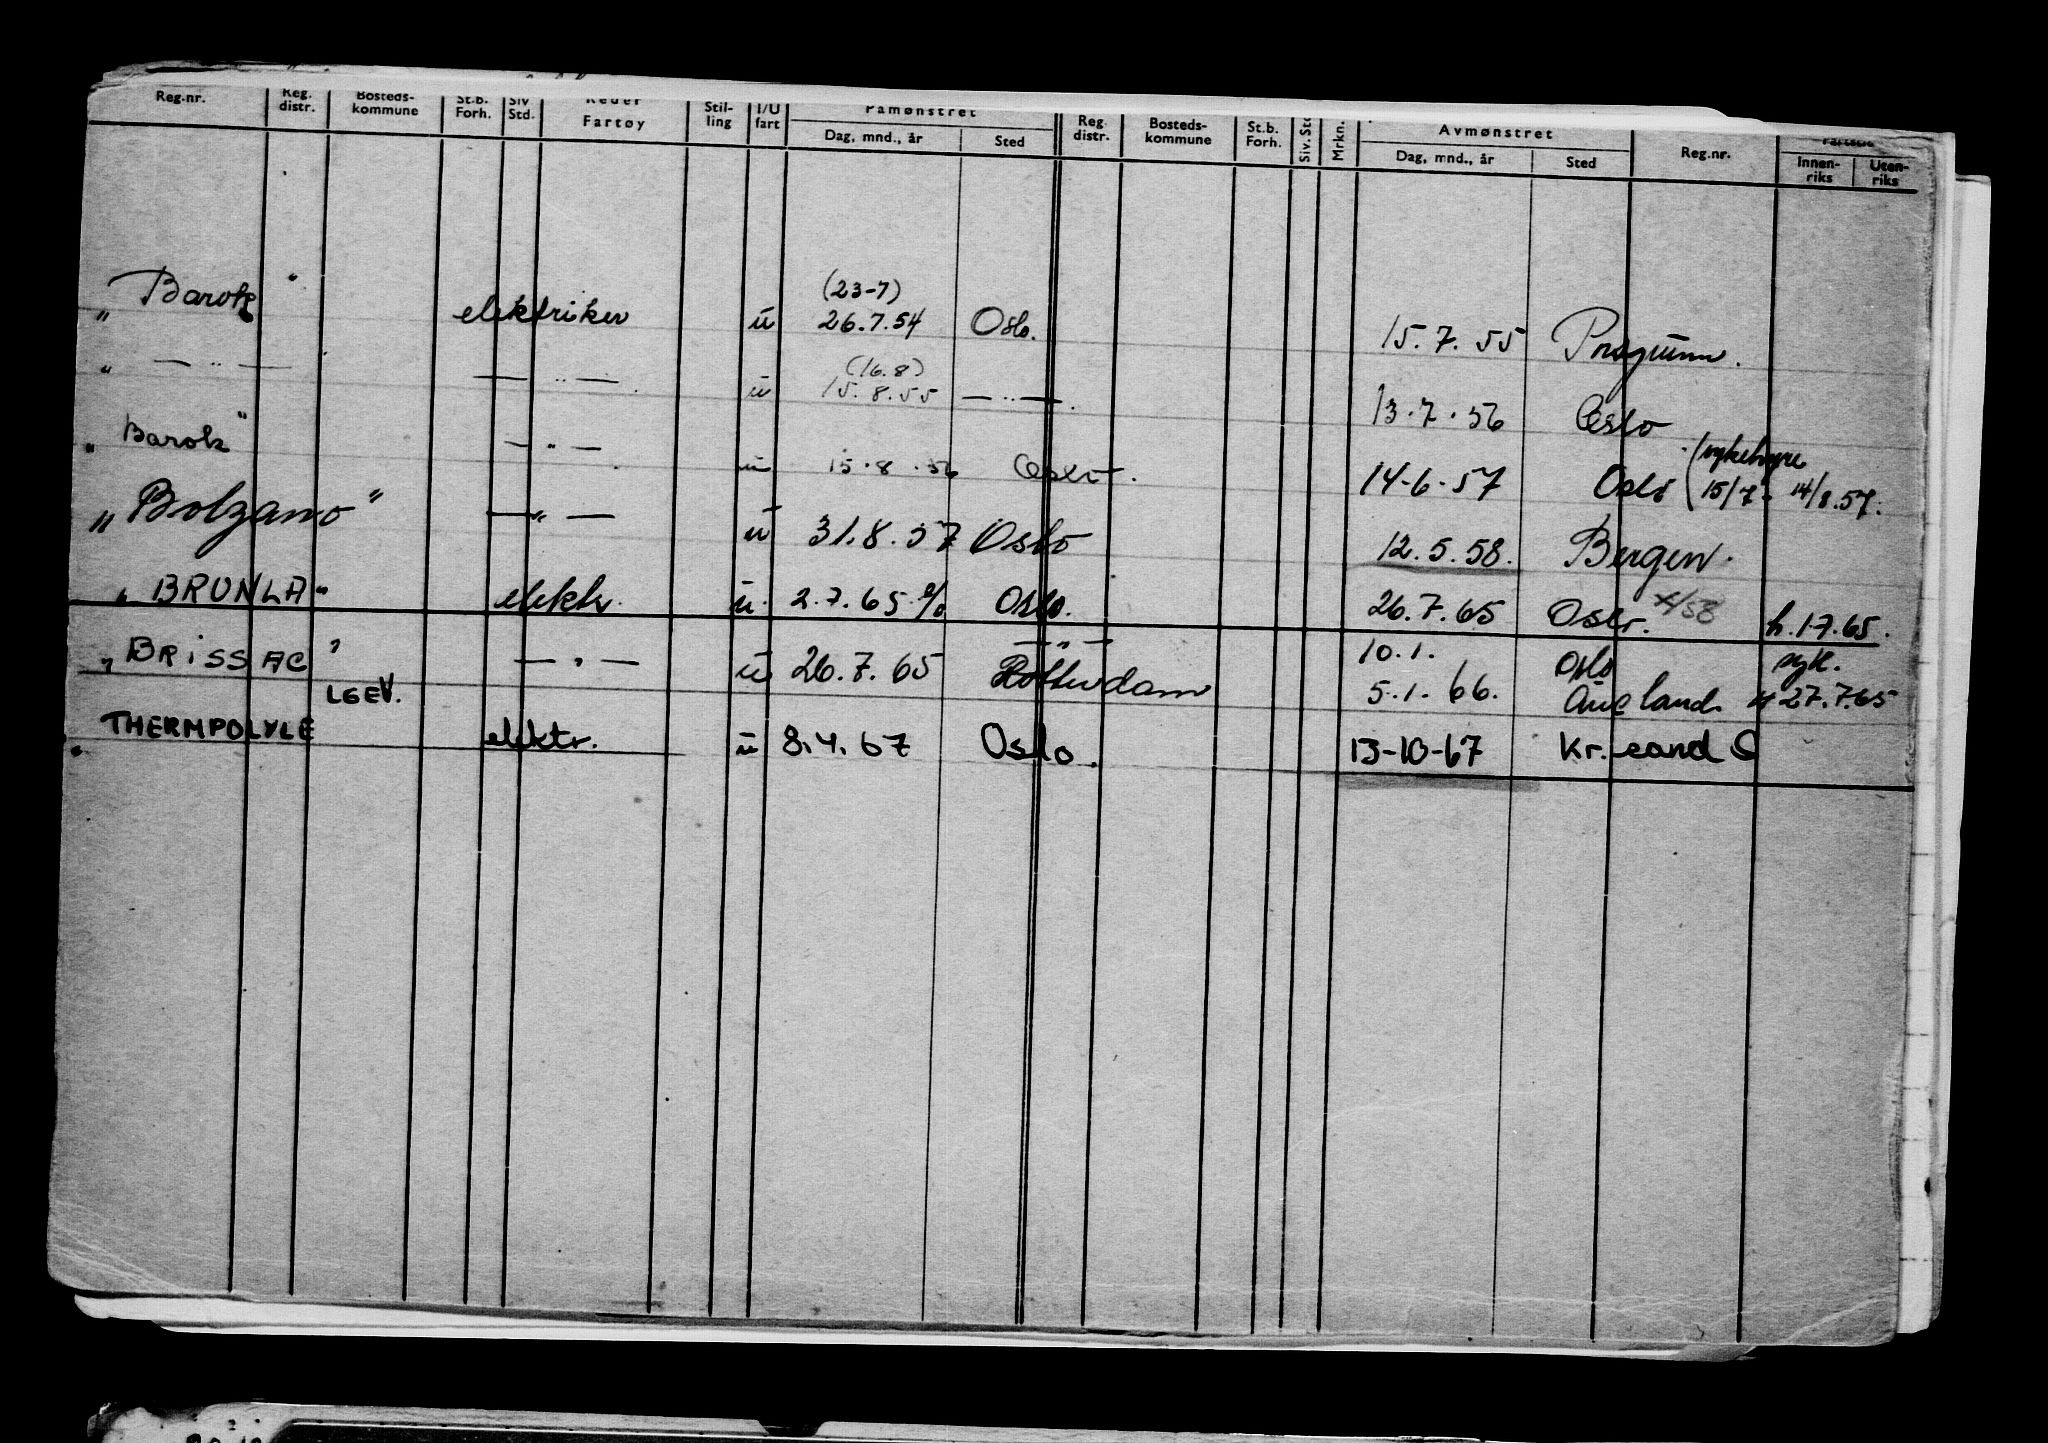 Reg.nr. Reg. distr. Bosteds-kommune St.b. Forh. Siv Std. Reder Fartøy Stil-ling I/U fart Påmønstret Dag, mnd., år Sted Reg distr. Bosteds-kommune St.b. Forh. Siv. Std Mrkn. Avmønstret Dag, mnd., år Sted Reg.nr. Fartstid Innen-riks Uten-riks
(23-7)
" Barok " elektriker u 26.7.54 Oslo. 15.7.55
(16.8)
" — " — — " — u 15.8.55 — " —. 13.7.56 Oslo
" Barok " — " — u 15.8.56 Oslo. 14-6-57 Oslo (sykehyre 15/7 - 14/8.57.
" Bolzano " — " — u 31.8.57 Oslo 12.5.58. Bergen.
" BRUNLA " elektr. u. 2.7.65 Oslo. 26.7.65 Oslo. x/58 h.1.7.65.
— " — 10.1. Oslo syk.
" BRISSAC " — " — u 26.7.65 Rotterdam 5.1.66. 27.7.65
LGEV.
THERMPOLYLE elektr. u 8.4.67 Oslo. 13-10-67 Kr.sand